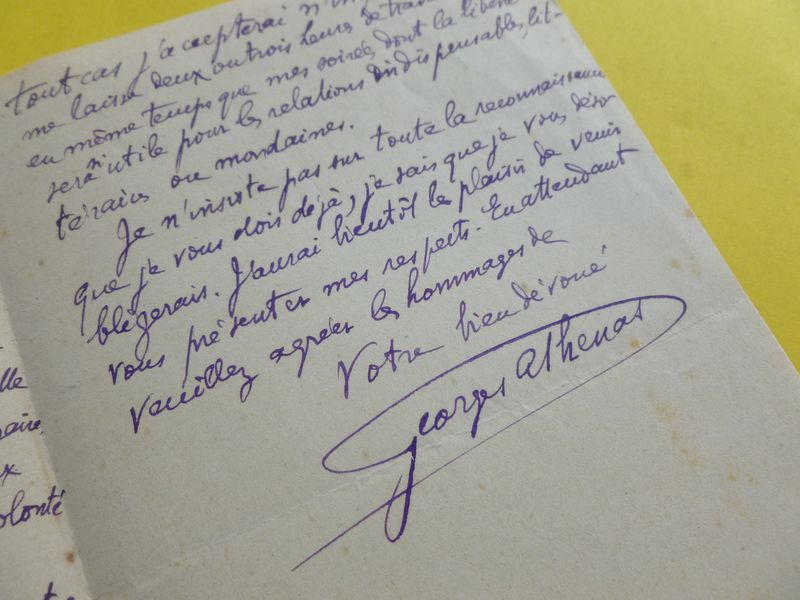 tout cas j'accepterai n'im
me laisse deux ou trois heures de trav
en même temps que mes soirées dont la liberté
sera utile pour les relations indispensables, lit-
téraires ou mondaines.
Je n'insiste pas sur toute la reconnaissance
que je vous dois déjà, je sais que je vous déso-
bligerais. J'aurai bientôt le plaisir de venir
vous présenter mes respects. En attendant
veuillez agréer les hommages de
Votre bien dévoué
Georges Athenas
lle
aire
x
olonté